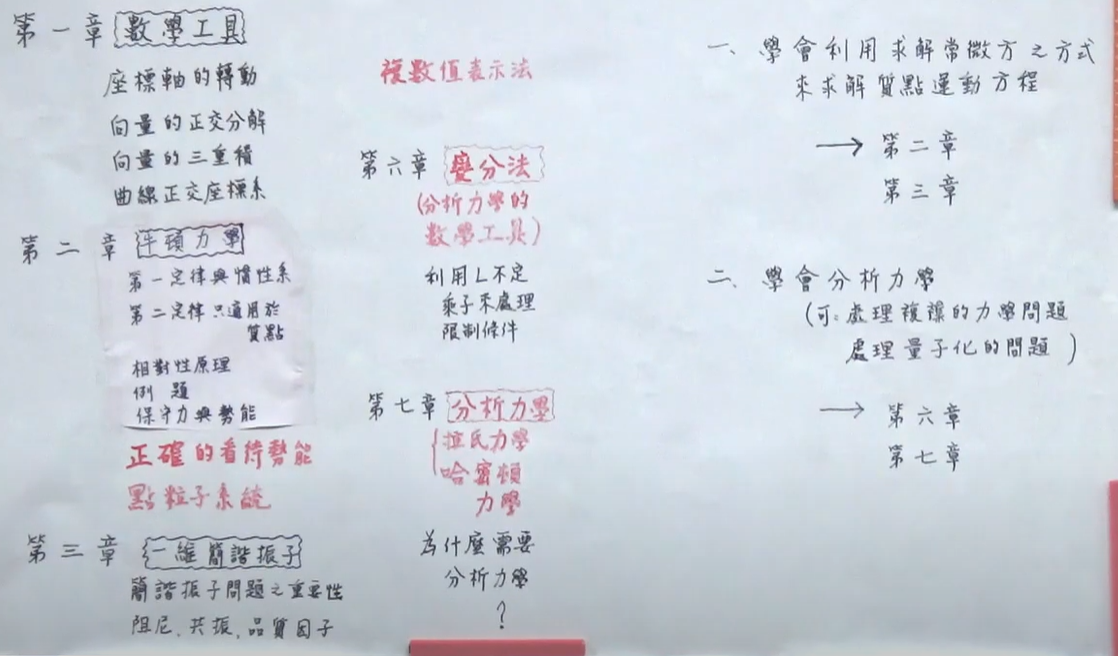 第一章 數學工具
座標軸的轉動
向量的正交分解
向量的三重積
曲線正交座標系
第二章 牛頓力學
第一定律與慣性系
第二定律只適用於
質點
相對性原理
例題
保守力與勢能
正確的看待勢能
點粒子系統
第三章 一維簡諧振子
簡諧振子問題之重要性
阻尼、共振、品質因子
複數值表示法
第六章 變分法
(分析力學的
數學工具)
利用L不定
乘子來處理
限制條件
第七章 分析力學
拉氏力學
哈密頓
力學
為什麼需要
分析力學
?
一、學會利用求解常微方之方式
來求解質點運動方程
→ 第二章
第三章
二、學會分析力學
(可:處理複雜的力學問題
處理量子化的問題)
→ 第六章
第七章